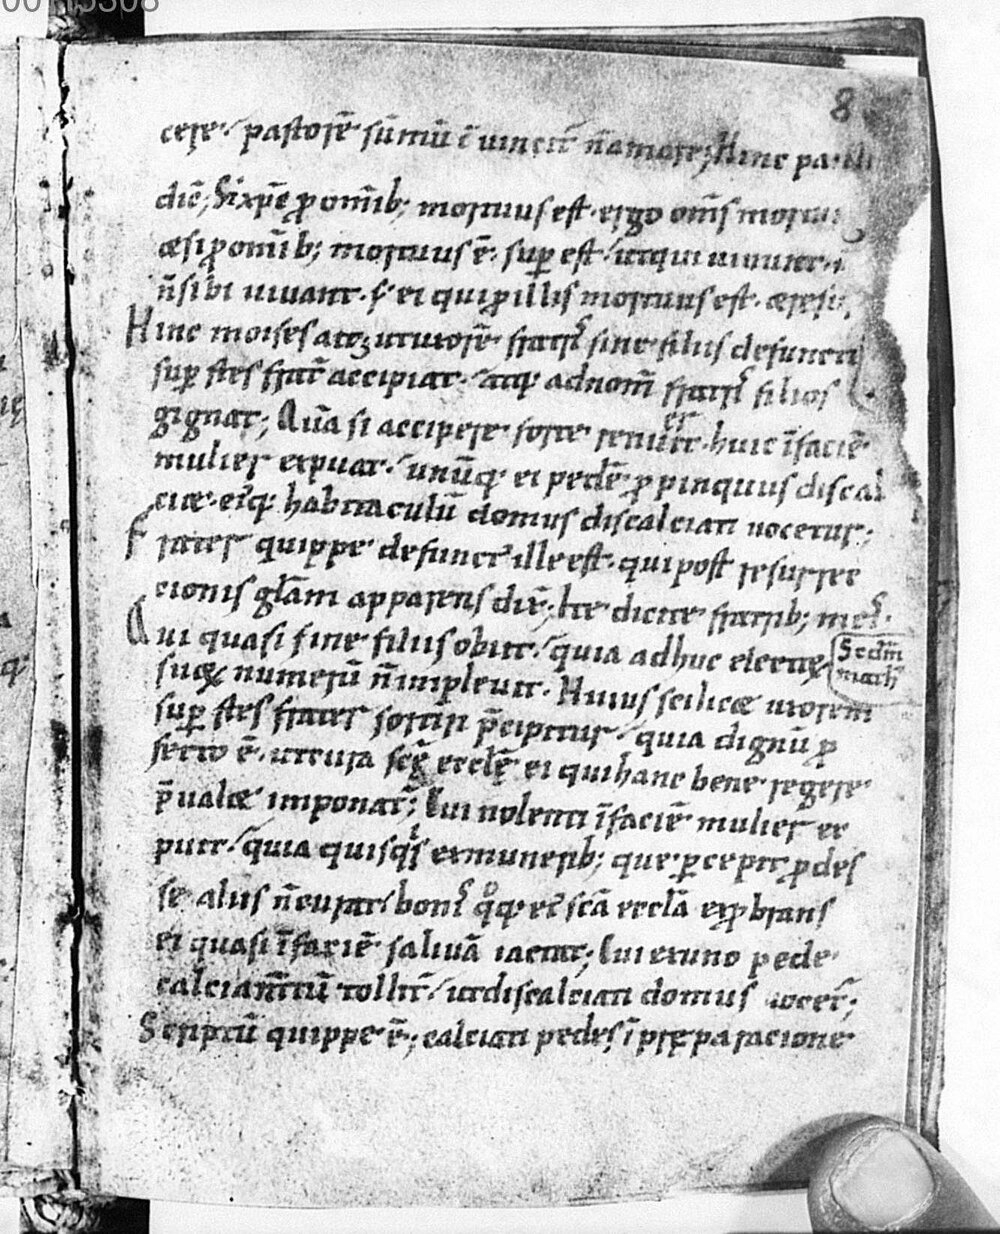 00115308
8
cere·pastorē sūmū c̄ uincit̄ n̄amare; Hinc paul
dic̄; Sixpē ꝓ omīb; mortuus est· ergo om̄s mortui
æsiꝓomīb; mortuus ē· suꝑ est· utqui uiuunt·
n̄sibi uiuant· s; ei quiꝓillis mortuus est· æresu
Hinc moises ait; utuxorē fratris sine filiis defuncti
suꝑstes frat̄ accipiat· atq; adnom̄ fratris filios
gignat; Quā si accipere forte renuerit· huic īfaciē
mulier expuat· unūq; ei pedē ꝓpinquus discal
ciæ· eiq; habitaculū domus discalciati uocetur;
Frater quippe defunct' ille est· qui post resurrec
cionis glām apparens dix̄; Ite dicite fratrib; meis·
Qui quasi sine filiis obiit· quia adhuc electoꝝ
Scdm̄
math
suoꝝ numerū n̄ impleuit· Huius scilicæ uxorem
suꝑstes frater sortiri p̄cipitur· quia dignū ꝓ
fecto ē· utcura scę̄ ecclę̄ ei quihanc bene regere
p̄ualæ imponat̄; Cui nolenti īfaciē mulier ex
puit· quia quisqs exmunerib; que ꝑcepit ꝓdes
se aliis n̄curat· bonis qoq; ei' scā ecclā exꝓbrans
ei quasi īfaciē saliuā iactat; Cui exuno pede
calciam̄tū tollit̄· utdiscalciati domus uocet̄;
Scriptū quippe ē; calciati pedes ī pręparacione